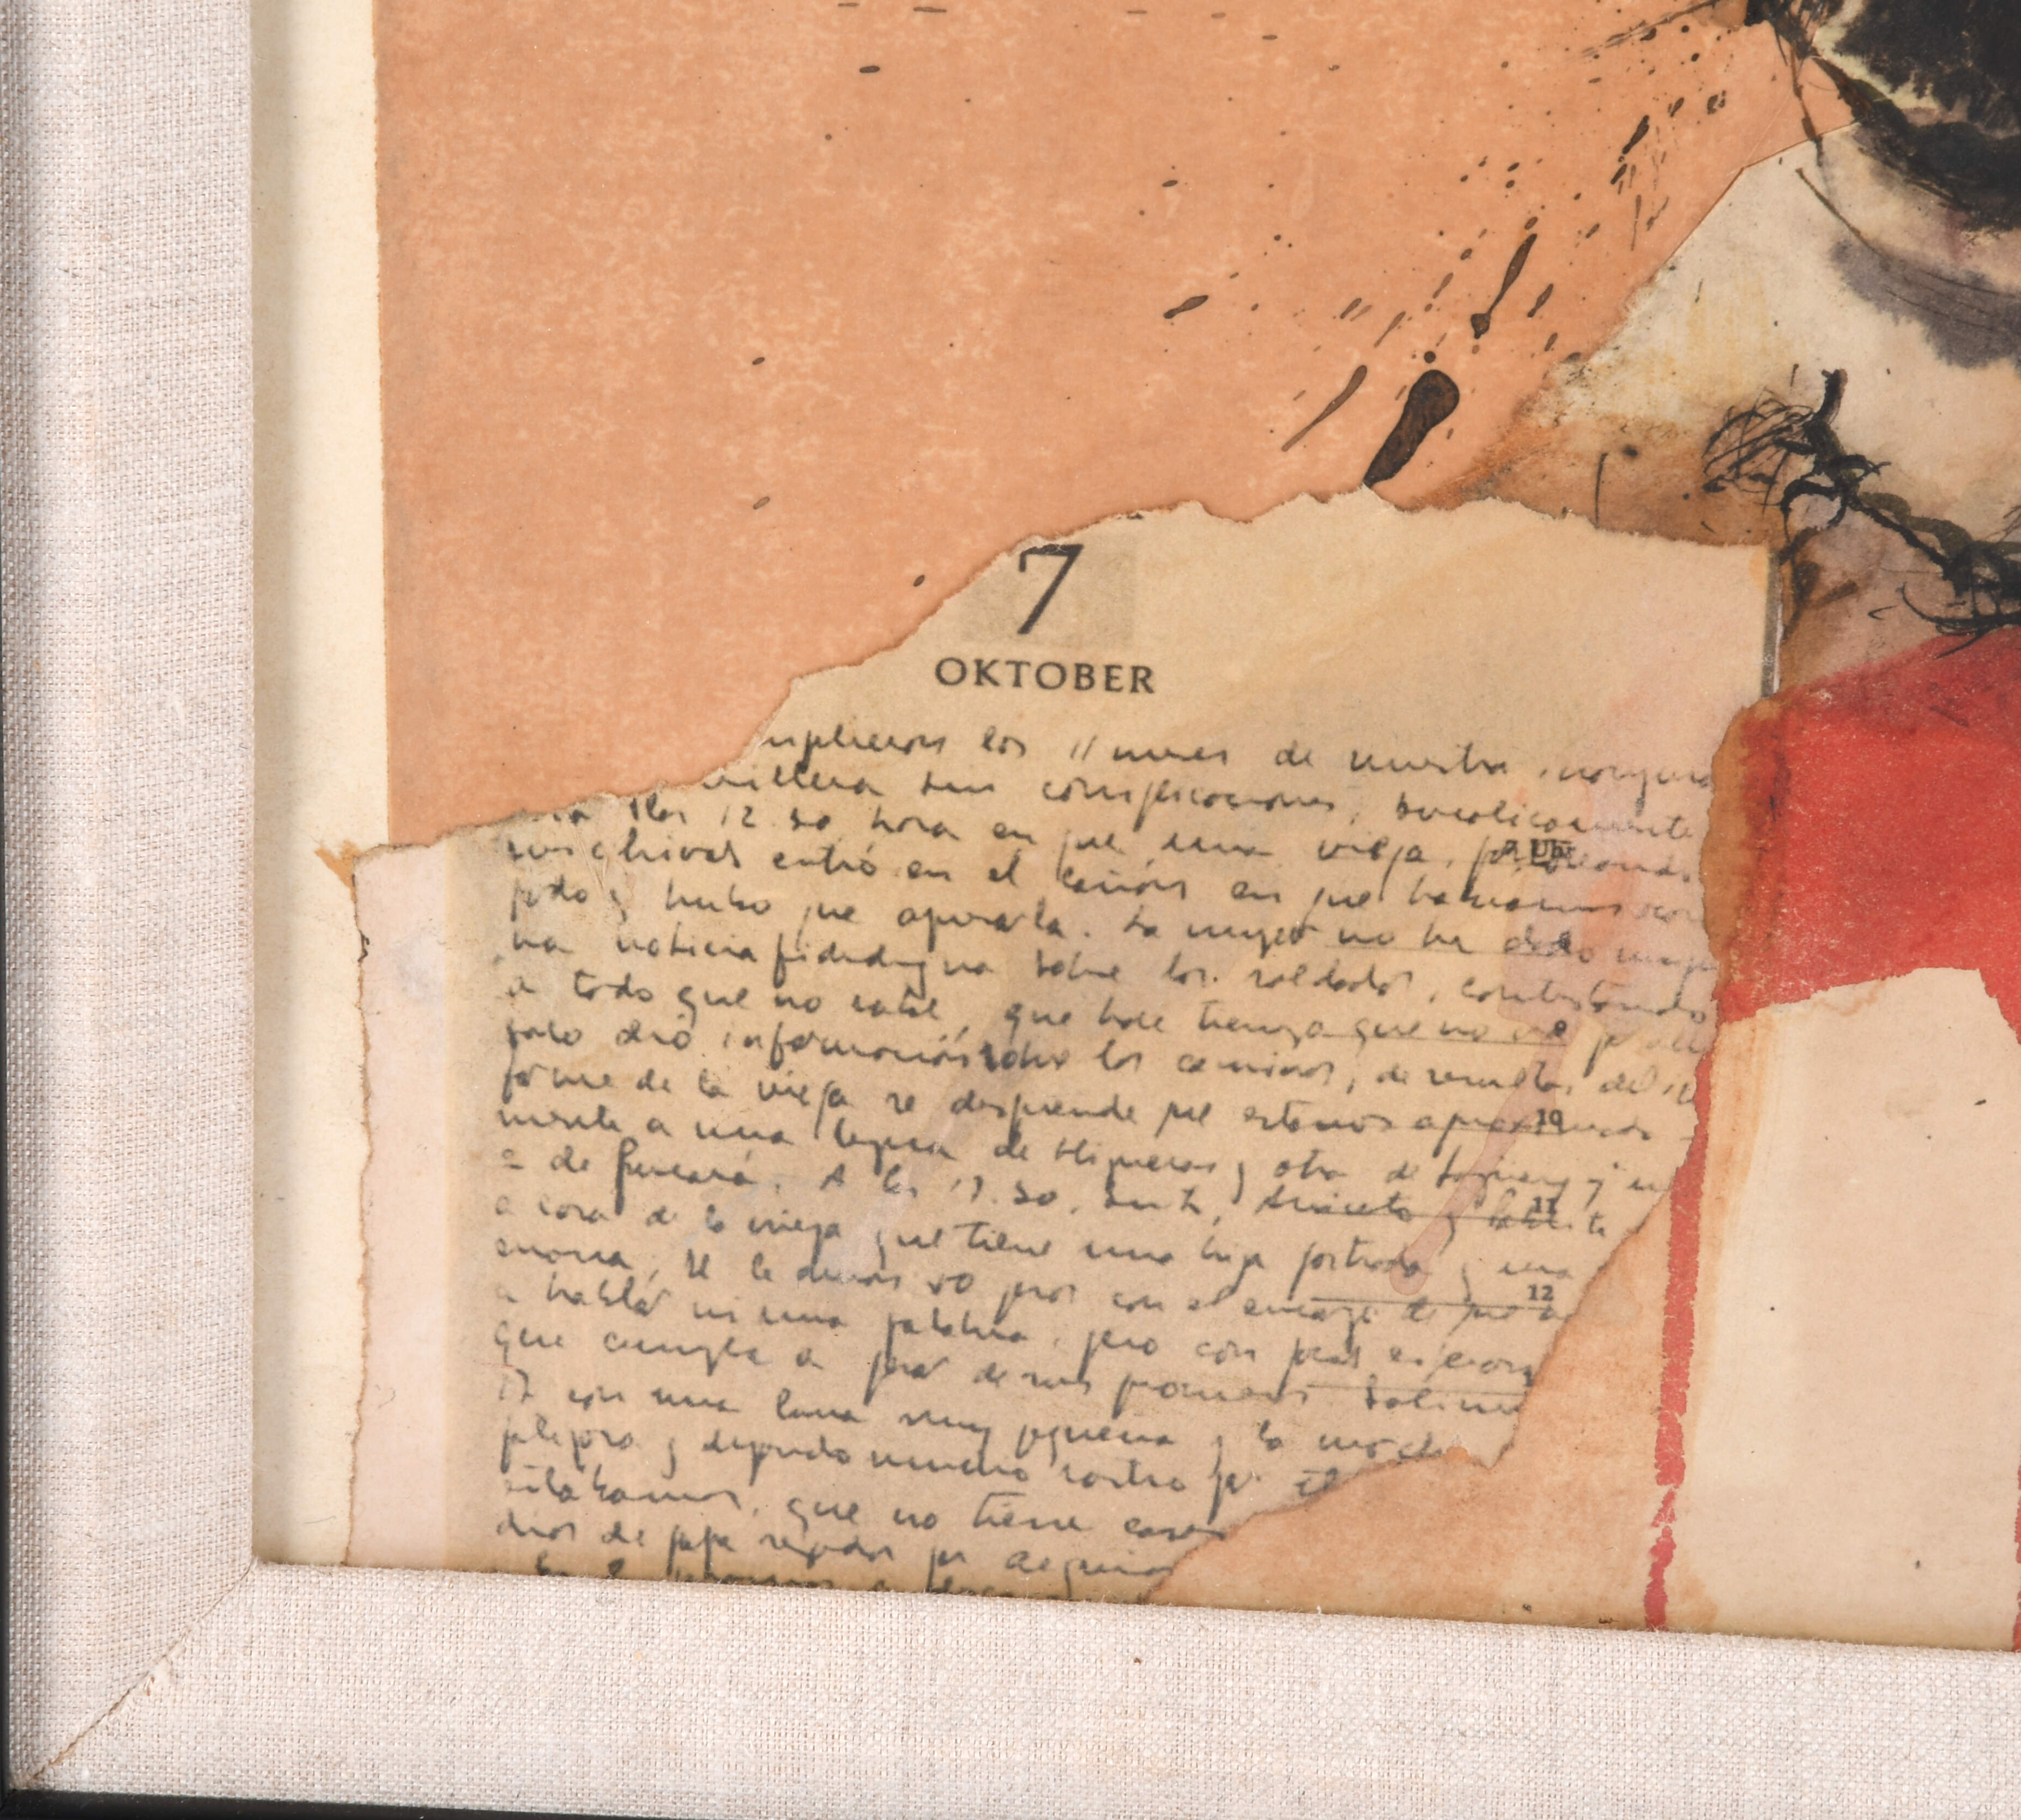 7
OKTOBER
mplieron los 11 meses de nuestra inaugura
rrillera sin complicaciones, bucolicamente
a las 12.30, hora en que una vieja, pastoreando
sus chivas entró en el cañón en que habiamos acam
pado y hubo que apresarla. La mujer no ha dado ningu
na noticia fidedigna sobre los soldados, contestando
a todo que no sabe, que hace tiempo que no va por alli
solo dió información sobre los caminos, de resultas del in
forme de la vieja se desprende que estamos aproximada
mente a una legua de Higueras y otra de Jaguey y un
2 de Pucará. A las 17.30, Inti, Aniceto y Pablito
a casa de la vieja que tiene una hija postrada y una
enana, se le dieron 50 pesos con el encargo de que
a hablar ni una palabra, pero con pocas esperan
que cumpla a pesar de sus promesas. Salimos
17 con una luna muy pequeña y la marcha
peligrosa y dejando mucho rastro por el
estábamos, que no tiene casas
dios de papa regados por acequias
10
11
12